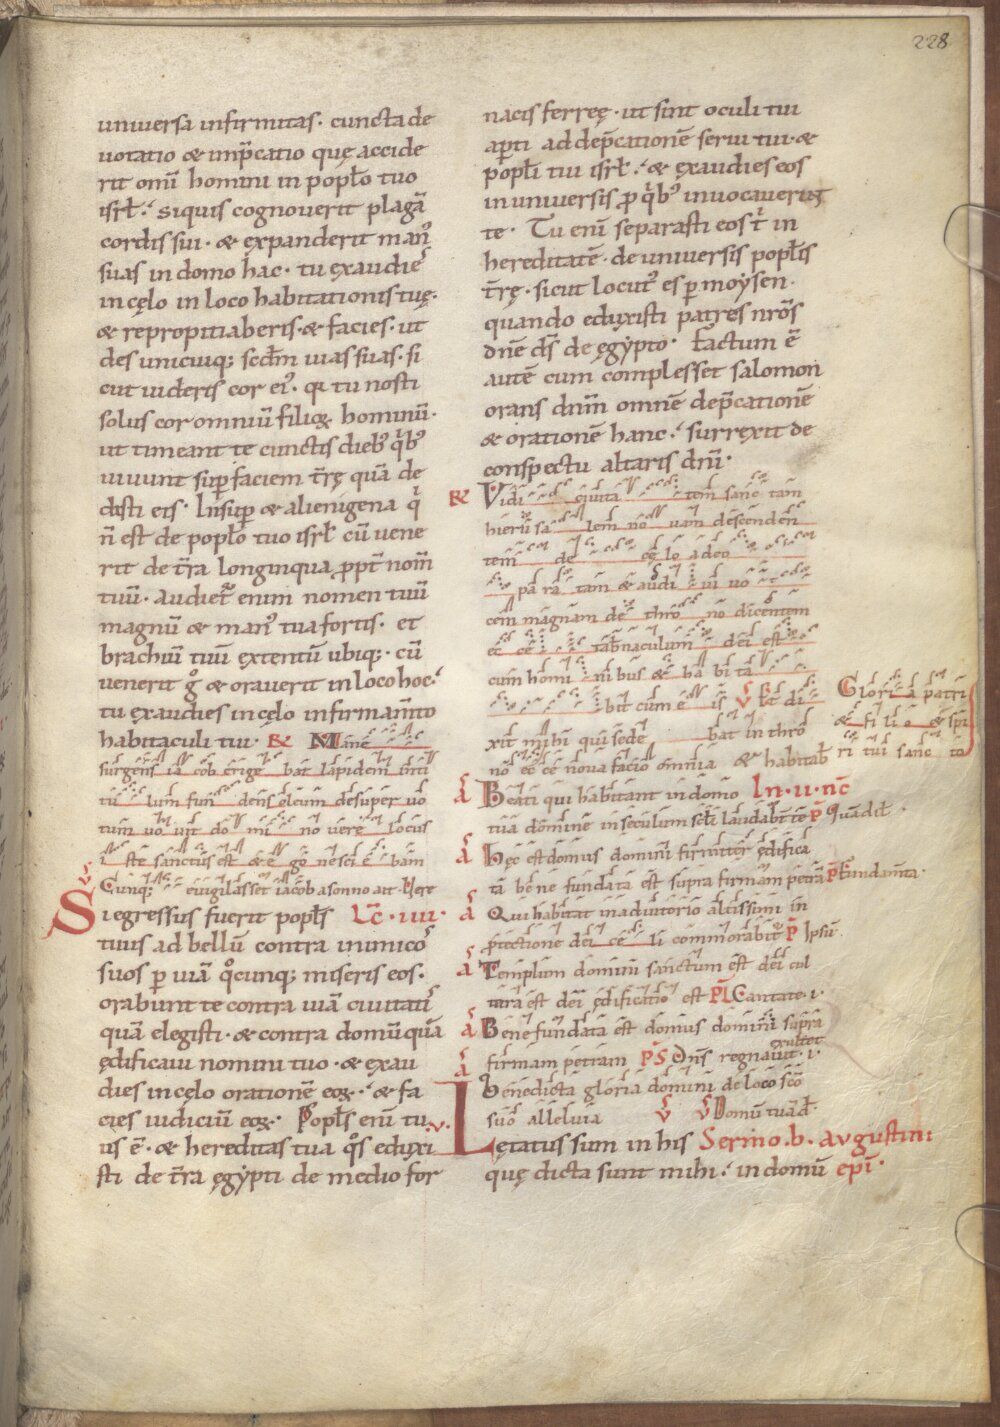 228
universa infirmitas. cuncta de
uotatio & imp̄catio quę accide
rit omī homini in poplō tuo
isrł. siquis cognoverit plagā
cordis sui. & expanderit man᾿
suas in domo hac. tu ęxaudies
in cęlo in loco habitationis tuę.
& repropitiaberis. & facies. ut
des unicuiq; scdm̄ uias suas. si
cut uideris cor ei᾿. q̄a tu nosti
solus cor omniū filioꝝ hominū.
ut timeant te cunctis dieb᾿ qͥb᾿
uiuunt sup faciem tr̄ę quā de
disti eis. Insup & alienigena qͥ
n̄ est de poplō tuo isrł cū vene
rit de tr̄a longinqua ꝓpt̄ nom̄
tuū. audiet᾿ enim nomen tuū
magnū & man᾿ tua fortis. et
brachiū tuū ęxtentū ubiq;. cū
venerit g° & oraverit in loco hoc.
tu ęxaudies in cęlo infirmam̄to
habitaculi tui. R Mane
surgens iacob erige bat lapidem in ti
tu lum fun dens oleum desuper uo
tum uo uit do mi no vere locus
i ste sanctus est & e go nesci e bam
V Cunq; euigilasset iacob a sonno ait. Vere
Si egressus fuerit popl̄s Lc̄. iiii.
tuus ad bellū contra inimicos
suos p uiā q°cunq; miseris eos.
orabunt te contra uiā civitatis
quā elegisti. & contra domū quā
ędificaui nomini tuo. & ęxau
dies in cęlo orationē eoꝝ. & fa
cies iudiciū eoꝝ. Popl̄s enī tu
us ē. & hereditas tua q°s eduxi
sti de tr̄a ęgypti de medio for
nacis ferreę. ut sint oculi tui
apti ad dep̄cationē serui tui. &
popli tui isrł. & ęxaudies eos
in universis ꝓ qͥb᾿ invocaverint
te. Tu enī separasti eos tͥ in
hereditatē. de universis poplis
tr̄ę. sicut locut᾿ es p moysen.
quando eduxisti patres nr̄os
dnē ds̄ de ęgypto. Factum ē
autē cum complesset salomon
orans dnm̄ omnē dep̄cationē
& orationē hanc. surręxit de
conspectu altaris dnī.
R Vidi civita tem sanc tam
hierusa lem no vam descenden
tem de cę lo a deo
pa ra tam & audi vi vo
cem magnam de thro no dicentem
ec ce tab̄naculum dei est
cum homi nibus & ha bi ta
bit cum e is V Et di
xit mihi qui sede bat in thro
nō ec ce nova facio omnia & habitab̄
Glori a patri
& fi li o & spi
ri tui sanc to
a Beati qui habitant in domo In. ii. nc̄
tua domine in seculum sēli laudab̄t te P Quādił.
a Hęc est domus domini firmiter ędifica
ta bene fundata est supra firmam petrā P Fundam̄ta.
a Qui habitat in adiutorio altissimi in
ꝓtectione dei cę li commorabit᾿ P Ipsū.
a Templum domini sanctum est dei cul
tura est dei ędificatio est PL Cantate. i.
a Bene fundata est domus domini supra
firmam petram PS Dn̄s regnavit. i.
exultet
a Benedicta gloria domini de loco scō
suo alleluia V V Domū tuā d̄.
v. Letatus sum in his Sermo. b. avgustini
quę dicta sunt mihi. in domū epī.